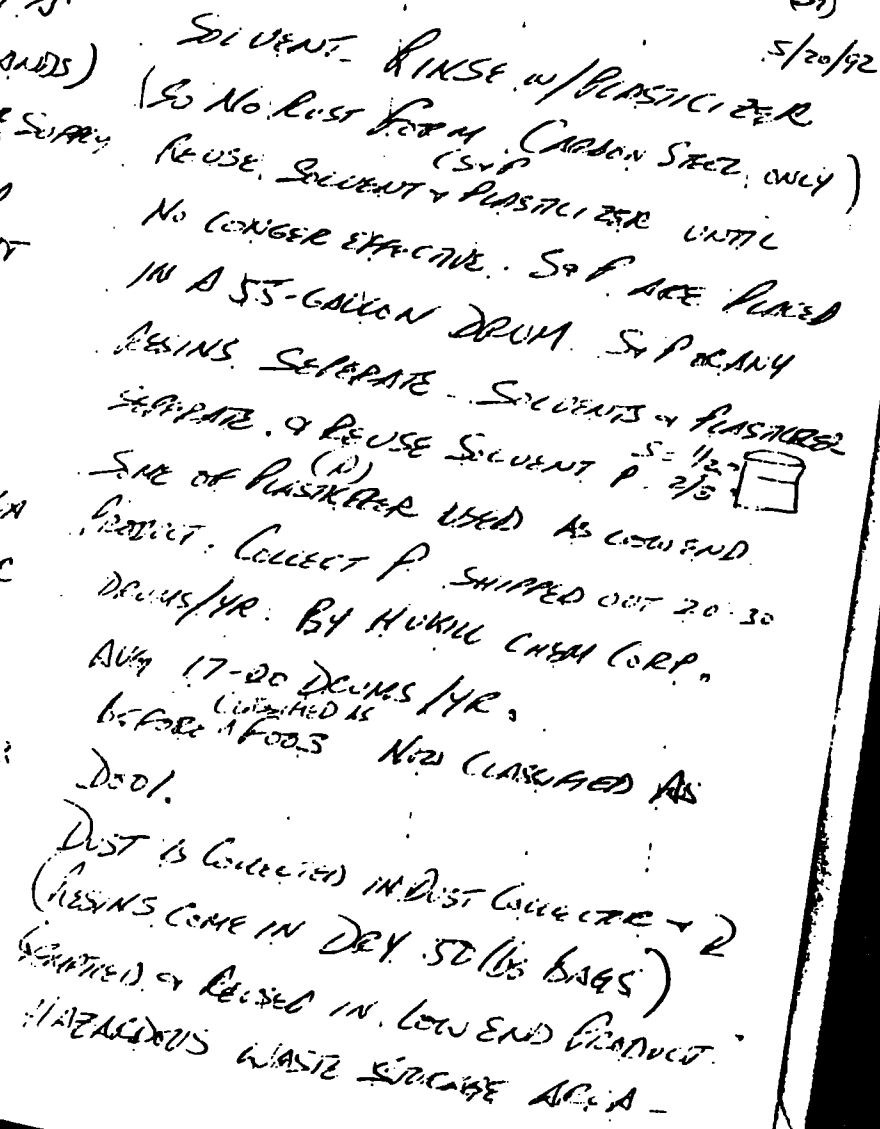 5/20/92
ANDS)
SUPPLY
SOLVENT - RINSE w/PLASTICIZER
(SO NO RUST FORM CARBON STEEL ONLY)
(S+P
REUSE SOLVENT + PLASTICIZER UNTIL
NO LONGER EFFECTIVE. S+P ARE PLACED
IN A 55-GALLON DRUM. S+P OR ANY
RESINS SEPERATE - SOLVENTS +
SEPERATE. + REUSE SOLVENT S = 1/2
P 2/3
SOME OF PLASTICIZER USED AS LOW END
PRODUCT. COLLECT P SHIPPED OUT 20-30
DRUMS/YR. BY HUKILL CHEM CORP.
AVG 17-20 DRUMS/YR.
CLASSIFIED AS
BEFORE ^ F005 NOW CLASSIFIED AS
D001.
DUST IS COLLECTED IN DUST COLLECTOR +
(RESINS COME IN DRY 50 lbs BAGS)
EMPTIED + REUSED IN LOW END PRODUCT.
HAZARDOUS WASTE STORAGE AREA -